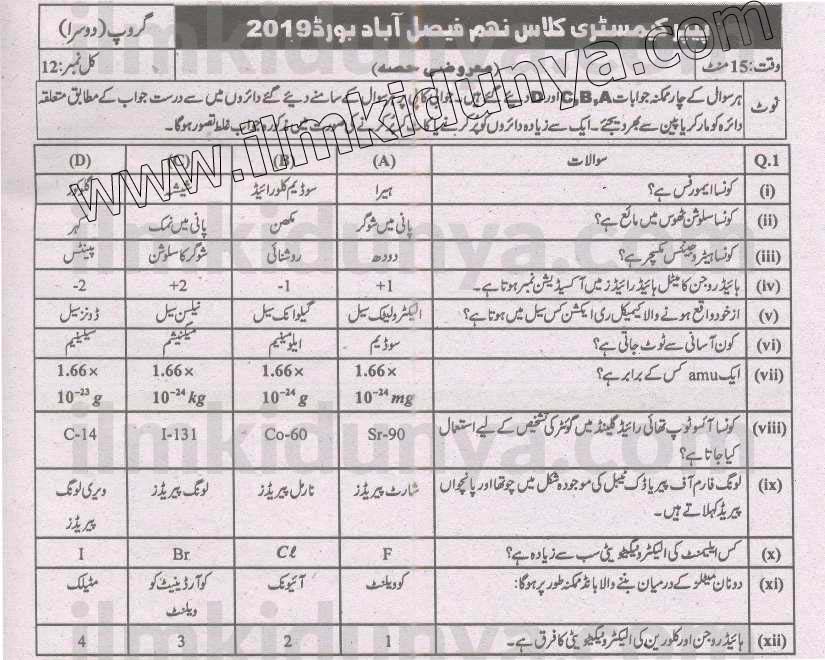 پیپر کیمسٹری کلاس نہم فیصل آباد بورڈ 2019 گروپ (دوسرا)
وقت: 15 منٹ (معروضی حصہ) کل نمبر: 12
نوٹ ہر سوال کے چار ممکنہ جوابات C,B,A اور D دیئے گئے ہیں۔ جوابی کاپی پر سوال کے سامنے دیئے گئے دائروں میں سے درست جواب کے مطابق متعلقہ
دائرہ کو مارکر یا پین سے بھر دیجئے۔ ایک سے زیادہ دائروں کو پُر کرنے یا کاٹ کر پُر کرنے کی صورت میں مذکورہ جواب غلط تصور ہوگا۔
Q.1 سوالات (A) (B) (C) (D)
(i) کونسا ایمورفس ہے؟ ہیرا سوڈیم کلورائیڈ شیشہ گلوکوز
(ii) کونسا سلوشن ٹھوس میں مائع ہے؟ پانی میں شوگر مکھن پانی میں نمک کہر
(iii) کونسا ہیٹروجینئس مکسچر ہے؟ دودھ روشنائی شوگر کا سلوشن پینٹس
(iv) ہائیڈروجن کا میٹل ہائیڈرائیڈز میں آکسیڈیشن نمبر ہوتا ہے۔ +1 -1 +2 -2
(v) ازخود واقع ہونے والا کیمیکل ری ایکشن کس سیل میں ہوتا ہے؟ الیکٹرولیٹک سیل گیلوانک سیل نیلسن سیل ڈونز سیل
(vi) کون آسانی سے ٹوٹ جاتی ہے؟ سوڈیم ایلومینیم میگنیشیم سیلینیم
(vii) ایک amu کس کے برابر ہے؟ 1.66× 10⁻²⁴ mg 1.66× 10⁻²⁴ g 1.66× 10⁻²⁴ kg 1.66× 10⁻²³ g
(viii) کونسا آئسوٹوپ تھائی رائیڈ گلینڈ میں گوئٹر کی تشخیص کے لیے استعمال
کیا جاتا ہے؟ Sr-90 Co-60 I-131 C-14
(ix) لونگ فارم آف پیریاڈک ٹیبل کی موجودہ شکل میں چوتھا اور پانچواں
پیریڈ کہلاتے ہیں۔ شارٹ پیریڈز نارمل پیریڈز لونگ پیریڈز ویری لونگ پیریڈز
(x) کس ایلیمنٹ کی الیکٹرونیگیٹیویٹی سب سے زیادہ ہے؟ F Cℓ Br I
(xi) دو نان میٹلز کے درمیان بننے والا بانڈ ممکنہ طور پر ہوگا: کوویلنٹ آئیونک کوآرڈینیٹ کوویلنٹ مٹیلک
(xii) ہائیڈروجن اور کلورین کی الیکٹرونیگیٹیویٹی کا فرق ہے۔ 1 2 3 4
www.ilmkidunya.com
ilmkidunya.com
ilmkidunya.com
ilmkidunya.com
ilmkidunya.com